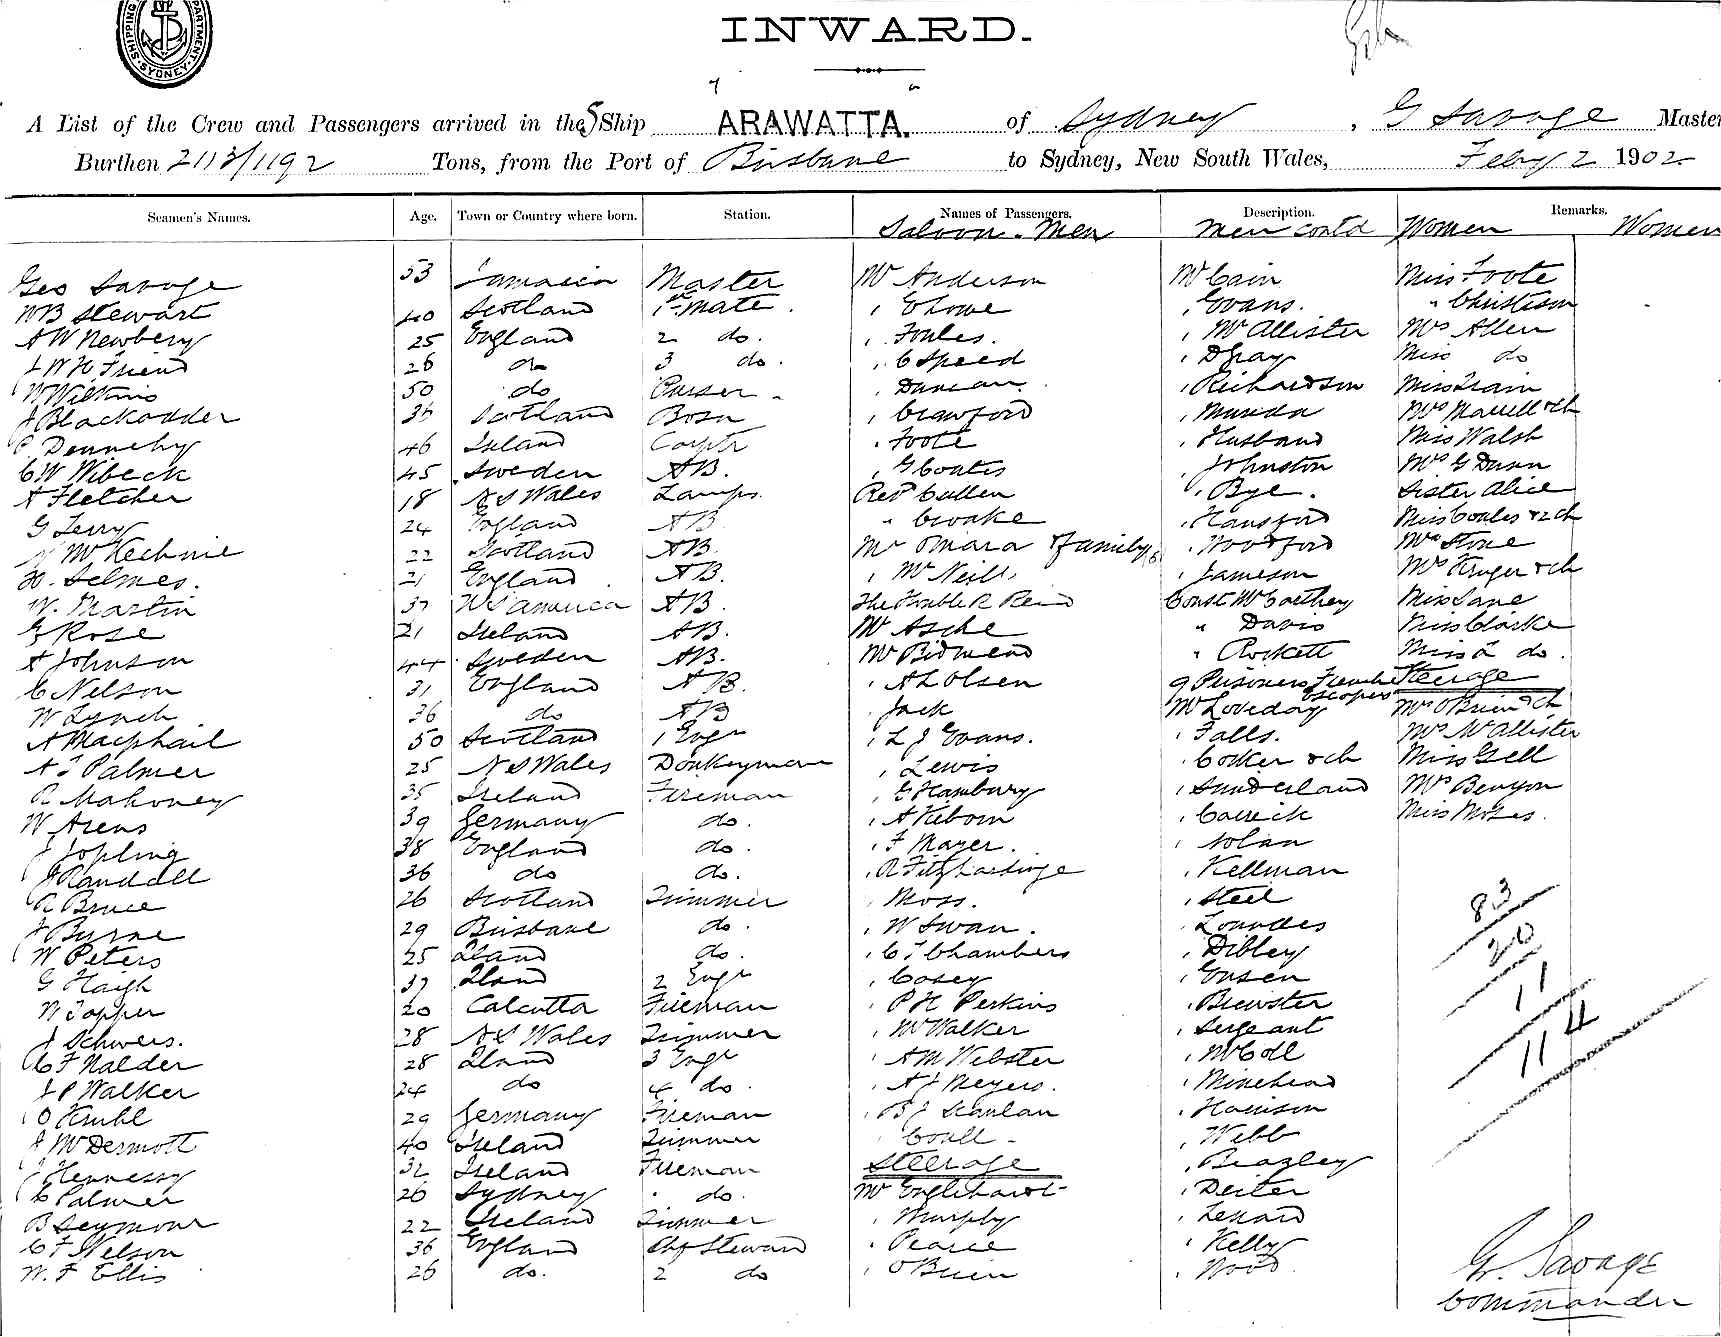 SHIPPING DEPARTMENT SYDNEY
INWARD.
A List of the Crew and Passengers arrived in the S Ship ARAWATTA. of Sydney, G Savage Master
Burthen 2113/1192 Tons, from the Port of Brisbane to Sydney, New South Wales, Feby 2 1902
Seamen's Names. Age. Town or Country where born. Station. Names of Passengers. Description. Remarks.
Saloon - Men Men contd Women Women
Geo Savage 53 Jamaica Master Mr Anderson Mr Cain Miss Foote
WB Stewart 40 Scotland 1st Mate " E Lowe " Evans. " Christison
A W Newbery 25 England 2 do. " Foules. " McAllister Mrs Allen
J W H Friend 26 do 3 do. " C Speed " D Gray Miss do
W Wilkins 50 do Purser " Duncan " Richardson Miss Train
J Blackadder 36 Scotland Bosn " Crawford " Munda Mrs Marell & ch
P Dennehy 46 Ireland Carptr " Foote " Husband Miss Walsh
C W Wibeck 45 Sweden AB. " G Coates " Johnston Mrs G Dunn
A Fletcher 18 N S Wales Lamps. Revd Cullen " Bye. Sister Alice
G Terry 24 England AB " Croake " Hansford Miss Coules & 2 ch
McKechnie 22 Scotland AB. Mr Omara & family (6) " Woodford Mrs Stone
H. Selmes. 21 England AB. " McNeill " Jameson Mrs Kruger & ch
W. Martin 37 U S America AB. The Honble R Reid Const McCarthey Miss Lane
G Rose 21 Ireland AB. Mr Asche " Davis Miss Clarke
A Johnson 44 Sweden AB. Mr Bidmead " Rockett Miss L do.
C Nelson 31 England AB. " A L Olsen 9 Prisoners French Escapees Steerage
W Lynch 36 do AB " Jack Mr Loveday Mrs OBrien & ch
A Macphail 50 Scotland 1 Engr " L J Evans. " Falls. Mrs McAllister
A J Palmer 25 N S Wales Donkeyman " Lewis " Corker & ch Miss Gell
R Mahoney 35 Ireland Fireman " G Hambury " Sunderland Mrs Benyon
W Arens 39 Germany do. " A Kiborn " Carrick Miss Moses.
J Jopling 38 England do. " F Mayer. " Nolan
J Randall 36 do do. " R Fitzhardinge " Kellman
R Bruce 26 Scotland Trimmer " Moss. " Steel
J Byrne 29 Brisbane do. " W Swan. " Lowndes
W Peters 25 Qland do. " C T Chambers " Dibley
G Haigh 37 Qland 2 Engr " Casey " Ensen
W Topper 20 Calcutta Fireman " P H Perkins " Brewster
J Schwers. 28 N S Wales Trimmer " McWalker " Sergeant
C F Nalder 28 Qland 3 Engr " A M Webster " McColl
J P Walker 24 do 4 do. " A J Meyers. " Minehead
O Kruhl 29 Germany Fireman " B J Scanlan " Harrison
J McDermott 40 Ireland Trimmer " Coull " Webb
J Hennessy 32 Ireland Fireman Steerage " Beazley
C Palmer 26 Sydney do. Mr Englehardt " Deiter
B Seymour 22 Ireland Trimmer " Murphy " Lenard
C F Nelson 36 England Chf Steward " Pearce " Kelly
W. F Ellis 26 do. 2 do " OBrien " Wood
83
20
11
114
G. Savage
Commander